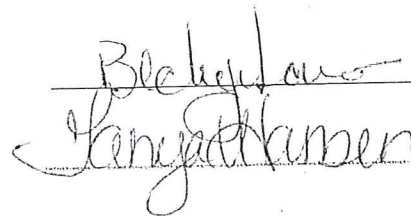 Becky
Tanya Hansen